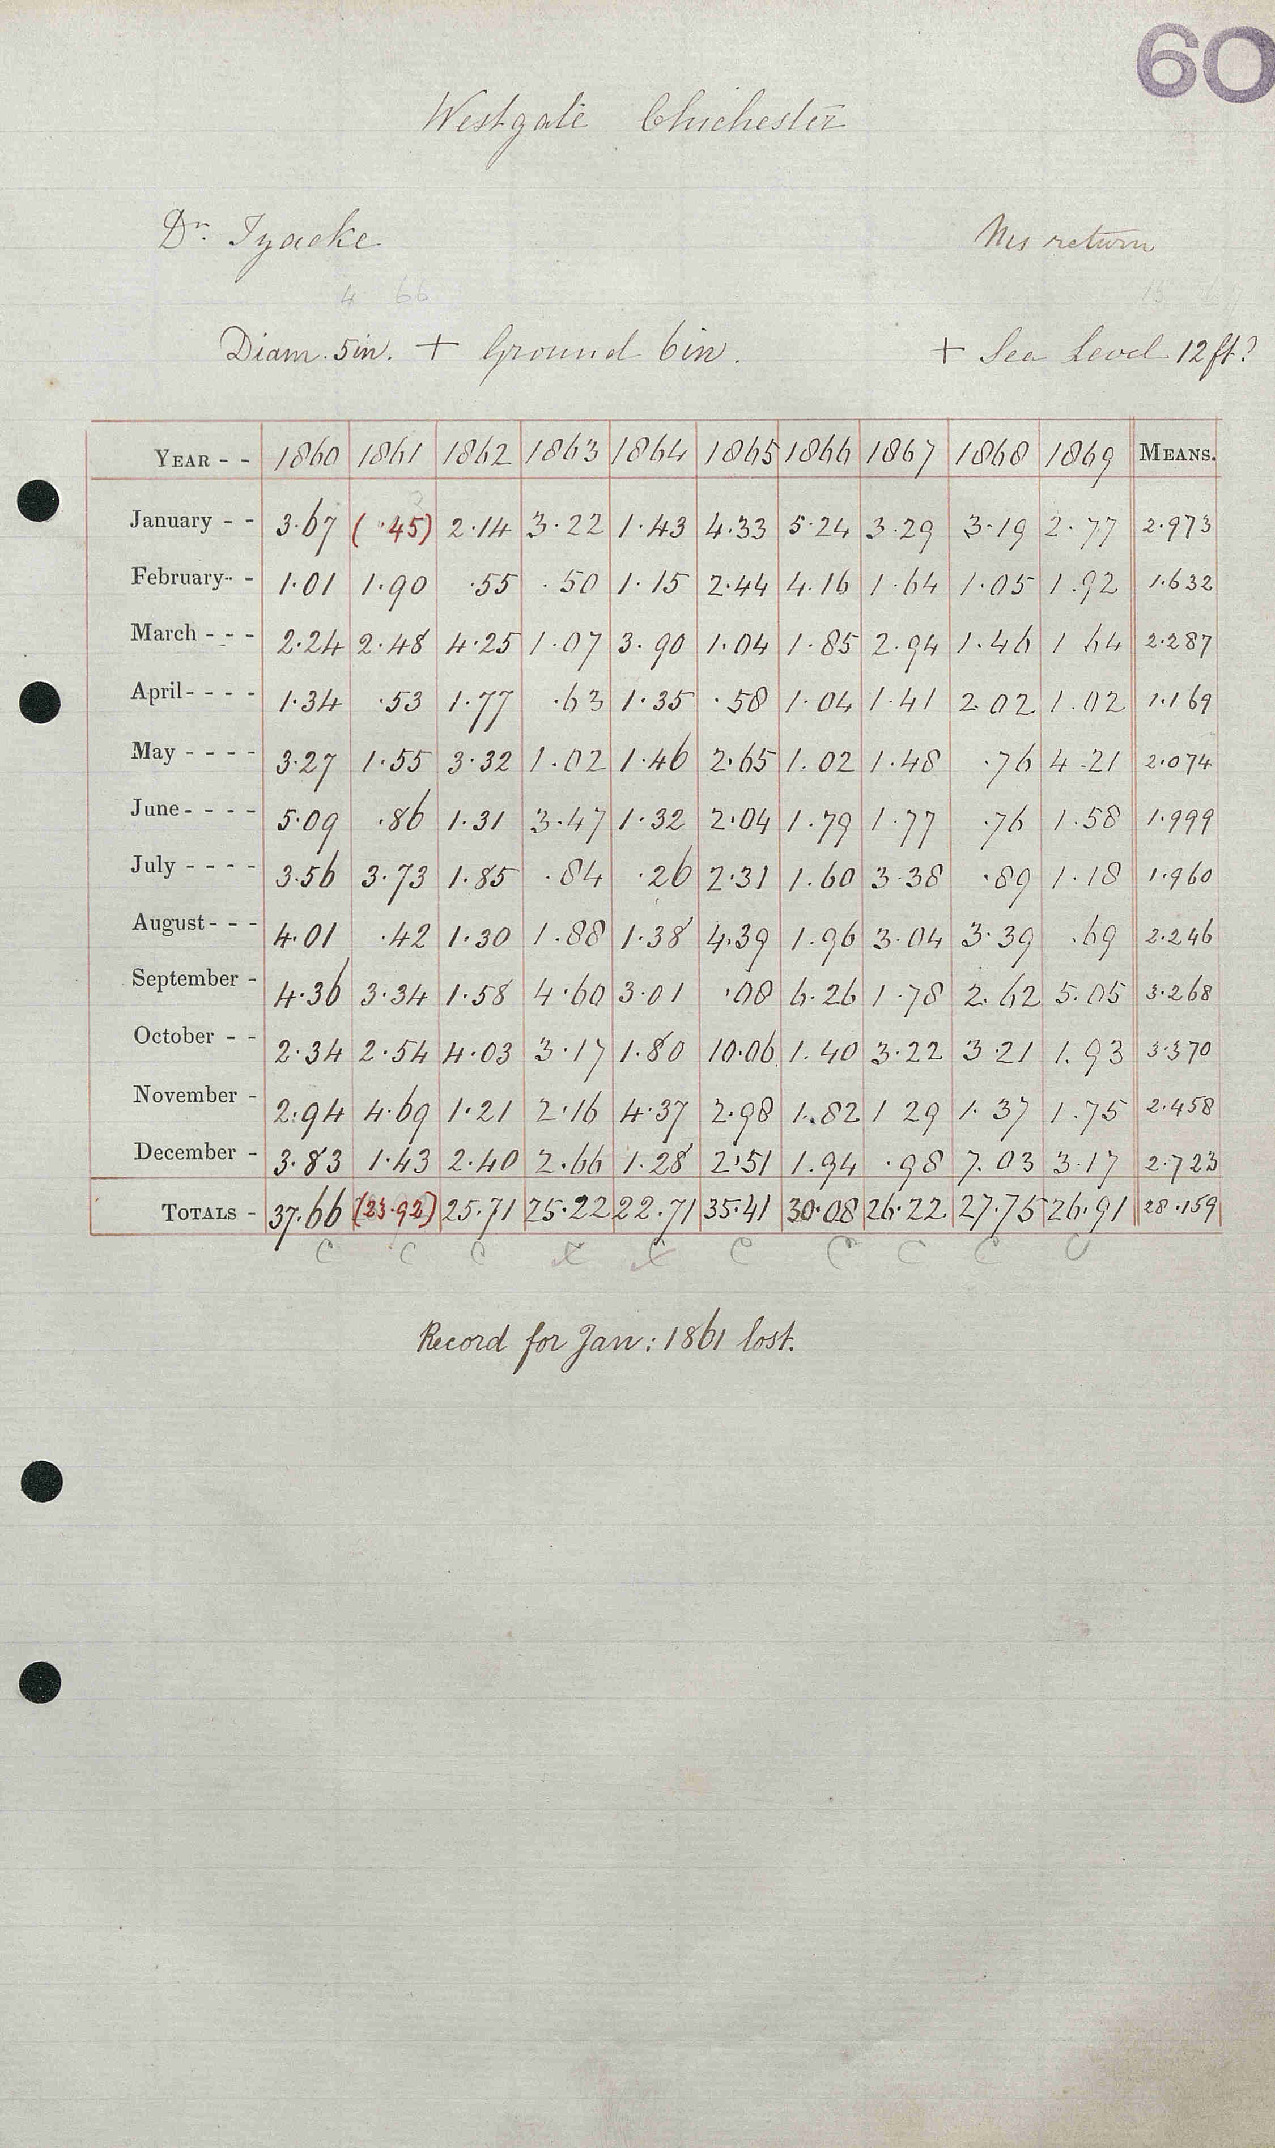 60
Westgate Chichester
Dr. Tyacke Ms return
4 66
Diam. 5in. + Ground 6in. + Sea Level 12ft?
YEAR - - 1860 1861 1862 1863 1864 1865 1866 1867 1868 1869 MEANS.
January - - 3.67 (.45) 2.14 3.22 1.43 4.33 5.24 3.29 3.19 2.77 2.973
February - - 1.01 1.90 .55 .50 1.15 2.44 4.16 1.64 1.05 1.92 1.632
March - - - 2.24 2.48 4.25 1.07 3.90 1.04 1.85 2.94 1.46 1 64 2.287
April - - - - 1.34 .53 1.77 .63 1.35 .58 1.04 1.41 2.02 1.02 1.169
May - - - - 3.27 1.55 3.32 1.02 1.46 2.65 1.02 1.48 .76 4.21 2.074
June - - - - 5.09 .86 1.31 3.47 1.32 2.04 1.79 1.77 .76 1.58 1.999
July - - - - 3.56 3.73 1.85 .84 .26 2.31 1.60 3.38 .89 1.18 1.960
August - - - 4.01 .42 1.30 1.88 1.38 4.39 1.96 3.04 3.39 .69 2.246
September - 4.36 3.34 1.58 4.60 3.01 .08 6.26 1.78 2.62 5.05 3.268
October - - 2.34 2.54 4.03 3.17 1.80 10.06 1.40 3.22 3.21 1.93 3.370
November - 2.94 4.69 1.21 2.16 4.37 2.98 1.82 1 29 1.37 1.75 2.458
December - 3.83 1.43 2.40 2.66 1.28 2.51 1.94 .98 7.03 3.17 2.723
TOTALS - 37.66 (23.92) 25.71 25.22 22.71 35.41 30.08 26.22 27.75 26.91 28.159
c c c x x c c c c c
Record for Jan: 1861 lost.